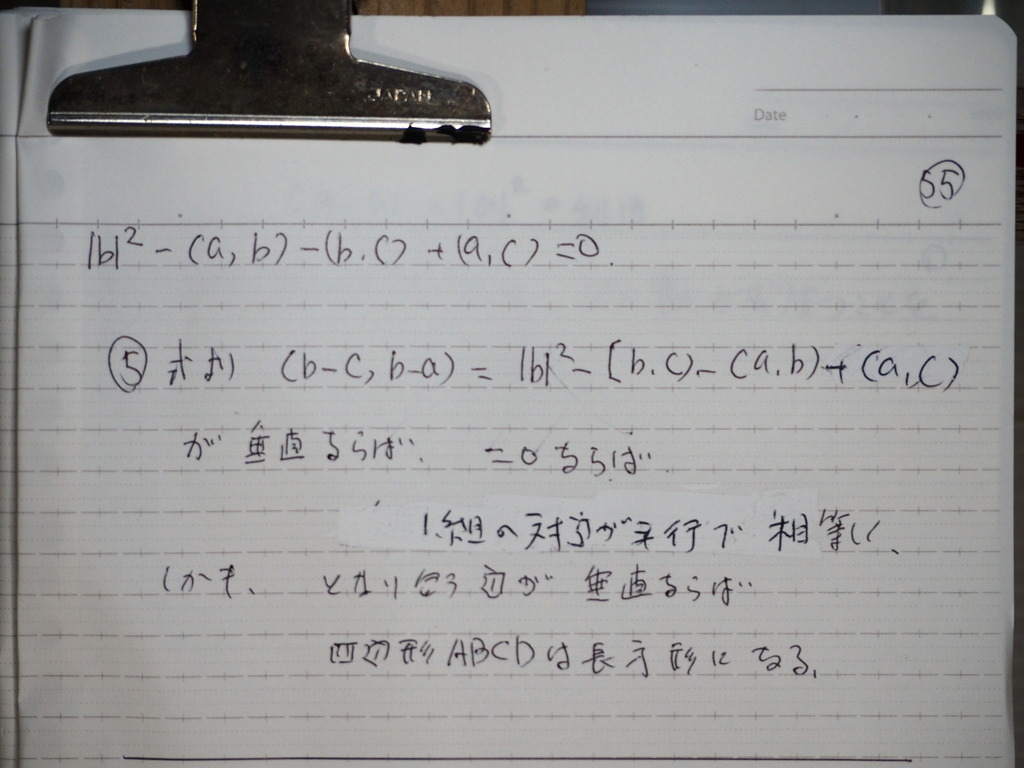 JAPAN
Date
55
|b|² - (a, b) - (b. c) + (a, c) = 0.
⑤ 式より (b-c, b-a) = |b|² - (b. c) - (a, b) + (a, c)
が 垂直ならば. =0 ならば.
1組の対辺が平行で 相等しく、
しかも、 となり合う 辺が 垂直ならば
四辺形 ABCD は長方形になる.